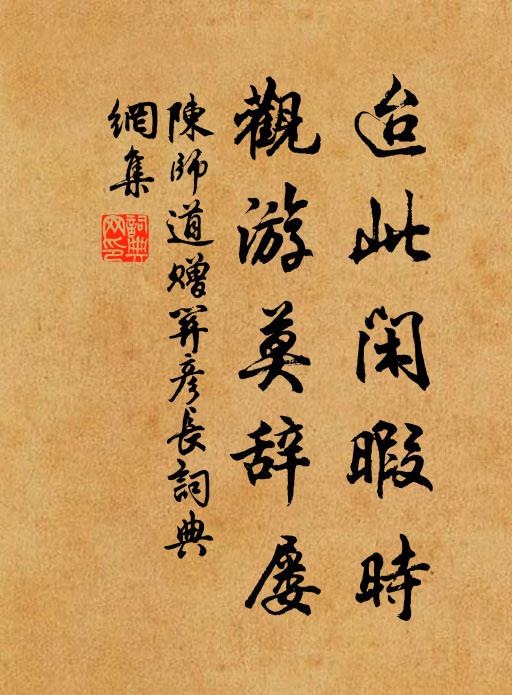 迨此閑暇時
觀游莫辞屡
陳師道贈笄彦長詞典
網集
詞典
网印